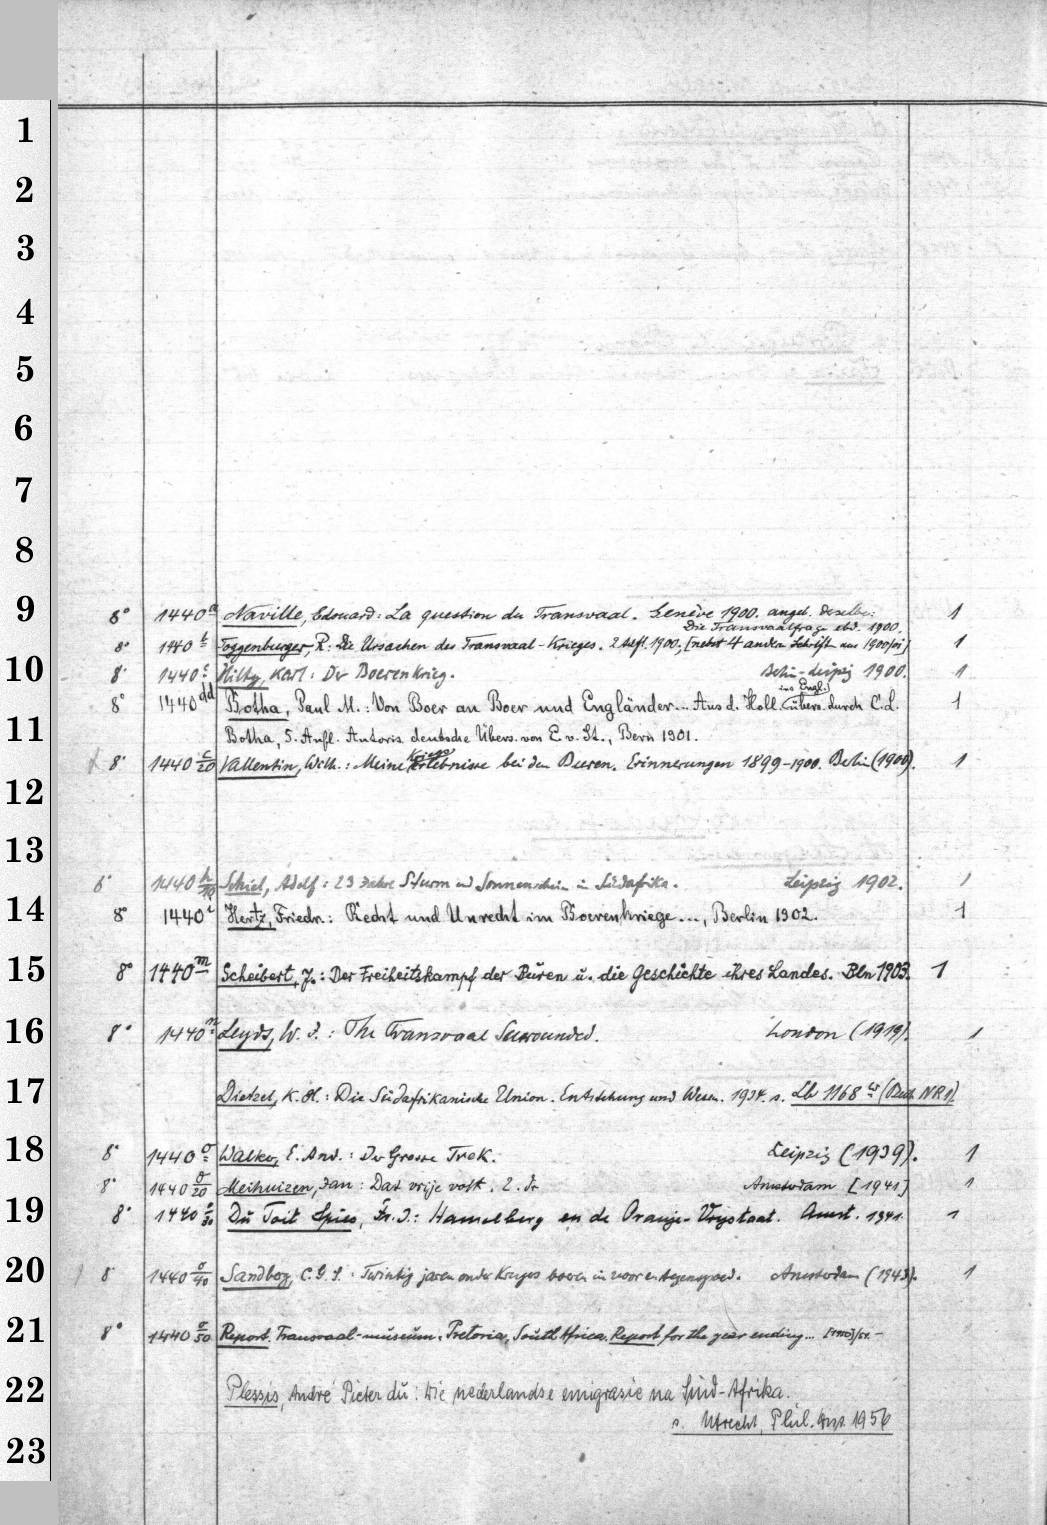 1
2
3
4
5
6
7
8
9
8° 1440 a Naville, Edouard: La question du Transvaal. Genève 1900. angeb. deselbe:
Die Transvaalfrage ebd. 1900. 1
8° 1440 b Toggenburger, R: Die Ursachen des Transvaal-Krieges. 2 Aufl. 1900, [nebst 4 andern Schrift. aus 1900/01] 1
10
8° 1440 c Hilty, Karl: Der Boerenkrieg. Berlin-Leipzig 1900. 1
8° 1440 dd Botha, Paul M.: Von Boer an Boer und Engländer... Aus d. Holl. ins Engl. übers. durch C.L. 1
11
Botha, 5. Aufl. Autoris. deutsche Übers. von E. v. St., Bern 1901.
8° 1440 c/20 Vallentin, Wilh.: Meine Kriegs Erlebnisse bei den Bueren. Erinnerungen 1899-1900. Berlin (1900). 1
12
13
8° 1440 h/10 Schiel, Adolf: 23 Jahre Sturm und Sonnenschein in Südafrika. Leipzig 1902. 1
14
8° 1440 i Hertz, Friedr.: Recht und Unrecht im Boerenkriege..., Berlin 1902. 1
15
8° 1440 m Scheibert, J.: Der Freiheitskampf der Buren u. die Geschichte ihres Landes. Bln 1903. 1
16
8° 1440 n Leyds, W. J.: The Transvaal Surrounded. London (1919). 1
17
Dietzel, K. H.: Die Südafrikanische Union. Entstehung und Wesen. 1934. s. Lb 1168 w (Beih NR 1)
18
8° 1440 o Walker, E. And.: Der Grosse Trek. Leipzig (1939). 1
8° 1440 o/20 Meihuizen, Jan: Dat vrije volk. 2. Dr. Amsterdam [1941] 1
19
8° 1440 o/30 Du Toit Spies, Fr. J.: Hamelberg en de Oranje-Vrystaat. Amst. 1941. 1
20
8° 1440 o/40 Sandberg, C.G.S.: Twintig jaren onder Krugers boeren in voor en tegenspoed. Amsterdam (1943). 1
21
8° 1440 o/50 Report. Transvaal-museum. Pretoria, South Africa. Report for the year ending...
22
Plessis, André Pieter du: Die nederlandse emigrasie na Suid-Afrika.
s. Utrecht, Phil. Diss. 1956
23